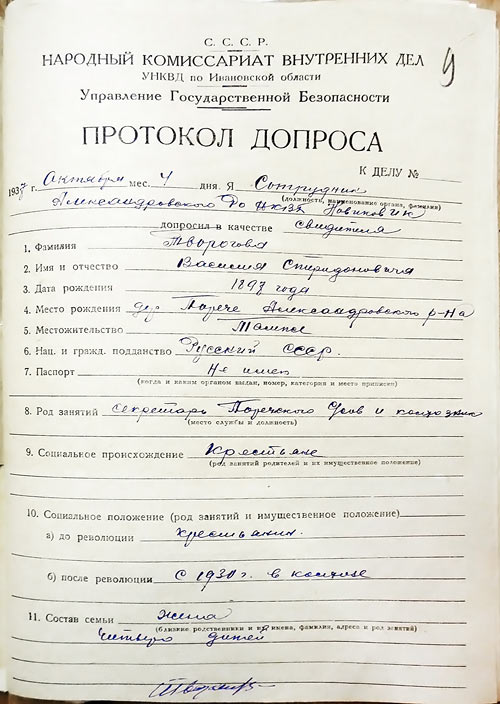 9
С. С. С. Р.
НАРОДНЫЙ КОМИССАРИАТ ВНУТРЕННИХ ДЕЛ
УНКВД по Ивановской области
Управление Государственной Безопасности
ПРОТОКОЛ ДОПРОСА
К ДЕЛУ №
1937 г. октября мес. 4 дня. Я Сотрудник
(должность, наименование органа, фамилия)
Александровского Ро НКВД
допросил в качестве свидетеля
1. Фамилия Творогова
2. Имя и отчество Василия Спиридоновича
3. Дата рождения 1897 года
4. Место рождения дер Александровского р-на
5. Местожительство
6. Нац. и гражд. подданство Русский СССР.
7. Паспорт Не имеет
(когда и каким органом выдан, номер, категория и место приписки)
8. Род занятий секретарь и колхозник
(место службы и должность)
9. Социальное происхождение Крестьяне
(род занятий родителей и их имущественное положение)
10. Социальное положение (род занятий и имущественное положение)
а) до революции крестьянин.
б) после революции С 1930 г. в колхозе
11. Состав семьи жена
(близкие родственники и их имена, фамилии, адреса и род занятий)
четверо детей